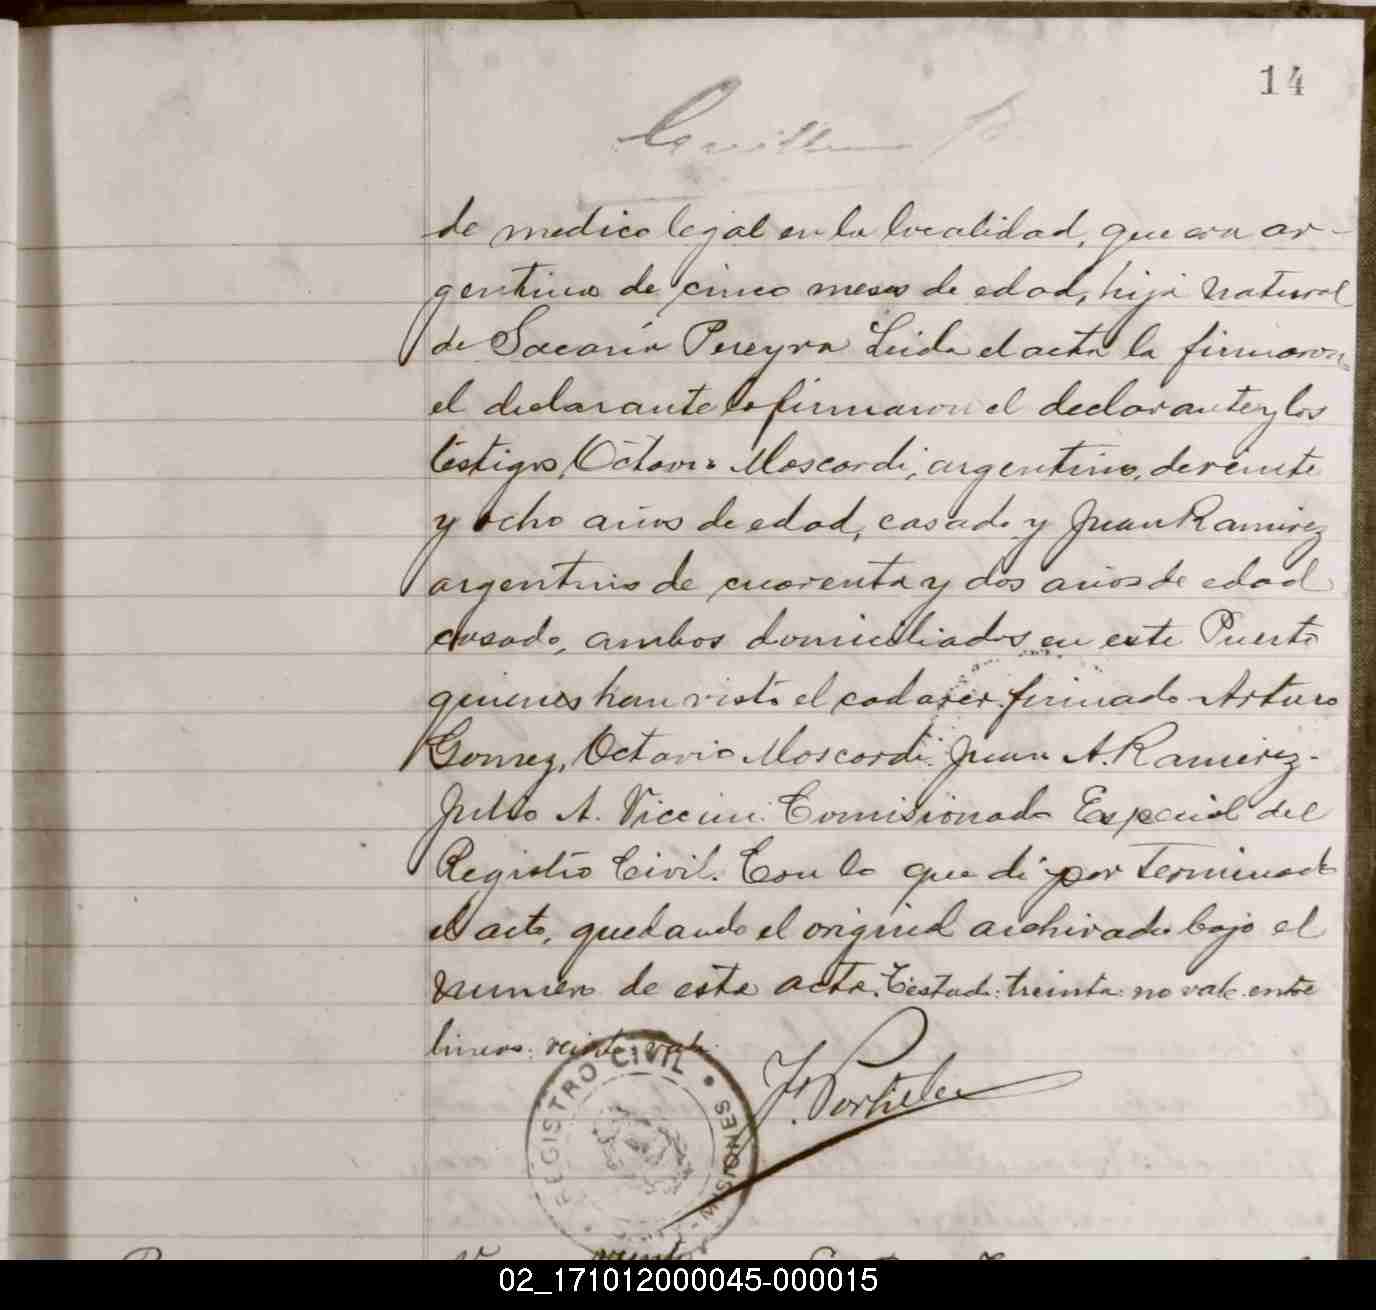 14
de medico legal en la localidad, que era ar-
gentina de cinco meses de edad, hija natural
de Sacaría Pereyra Leida el acta la firmaron
el declarante la firmaron el declarante y los
testigos, Octavio Moscardi, argentino, de veinte
y ocho años de edad, casado y Juan Ramirez
argentino de cuarenta y dos años de edad
casado, ambos domiciliados en este Puerto
quienes han visto el cadaver. firmado Arturo
Gomez, Octavio Moscardi. Juan A. Ramirez-
Julio A. Viccini. Comisionado Especial del
Registro Civil. Con lo que di por terminado
el acto, quedando el original archivado bajo el
numero de esta acta. Testado: treinta: no vale. entre
lineas: veinte: vale.
REGISTRO CIVIL • MISIONES
veinte
02_171012000045-000015